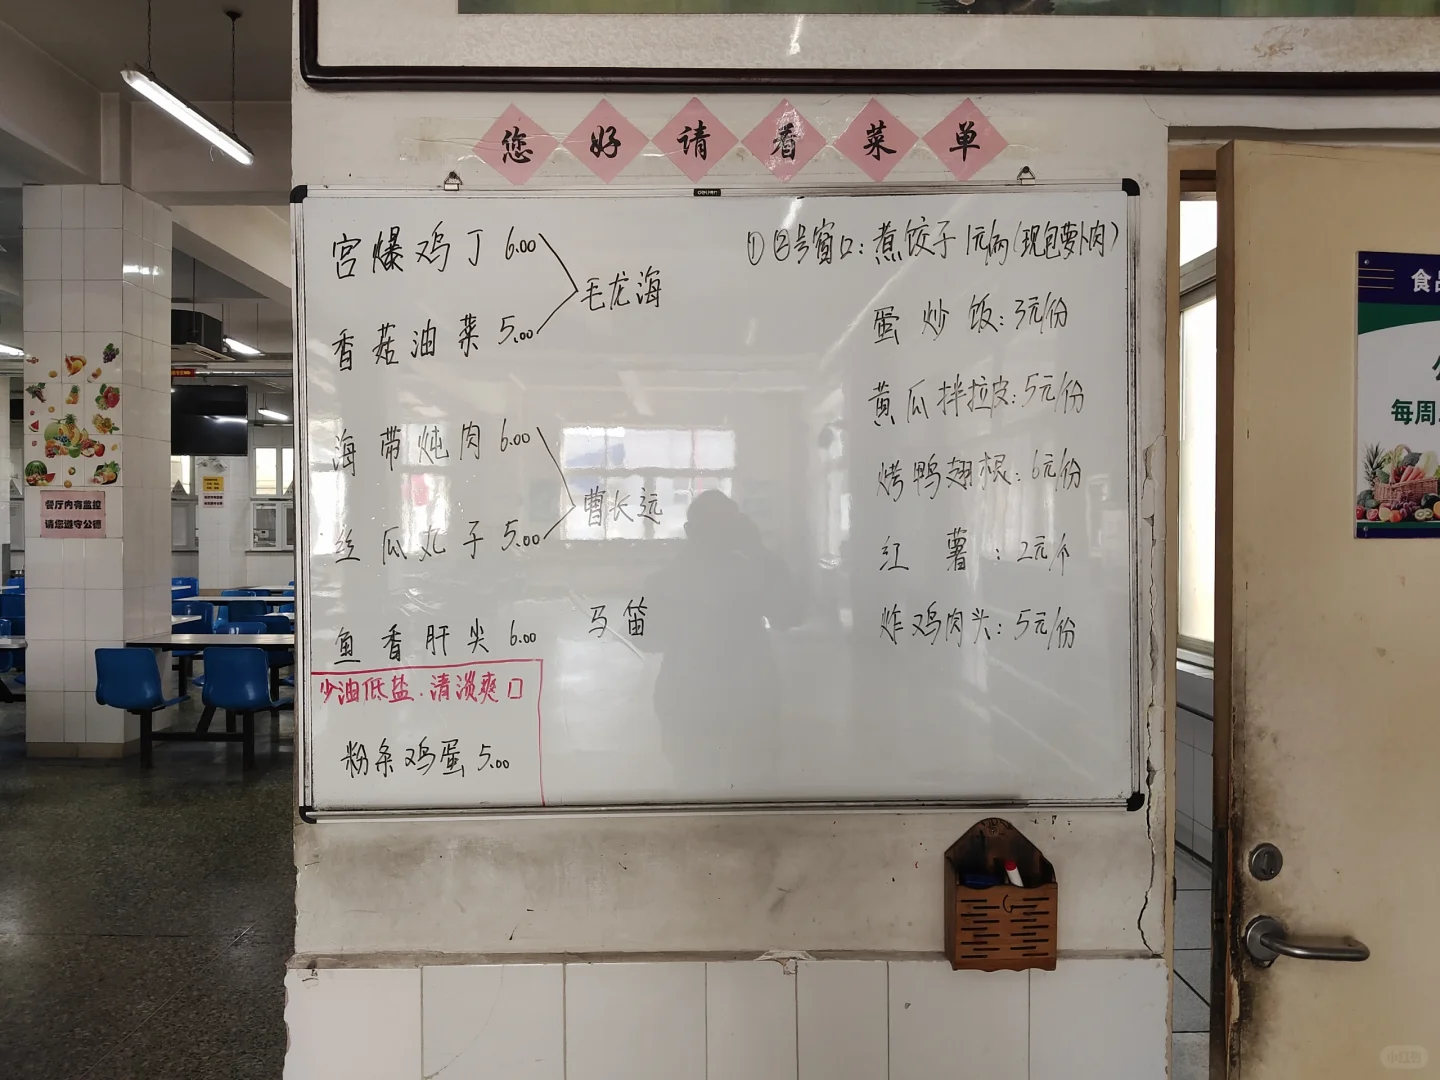 您好请看菜单
deli
宫爆鸡丁 6.00
香菇油菜 5.00
毛龙海
海带炖肉 6.00
丝瓜丸子 5.00
曹长远
鱼香肝尖 6.00
马笛
少油低盐.清淡爽口
粉条鸡蛋 5.00
①②号窗口:煮饺子1元/两(现包萝卜肉)
蛋炒饭:3元/份
黄瓜拌拉皮:5元/份
烤鸭翅根:6元/份
红薯:2元/个
炸鸡肉头:5元/份
餐厅内有监控
请您遵守公德
食品
每周
小红书